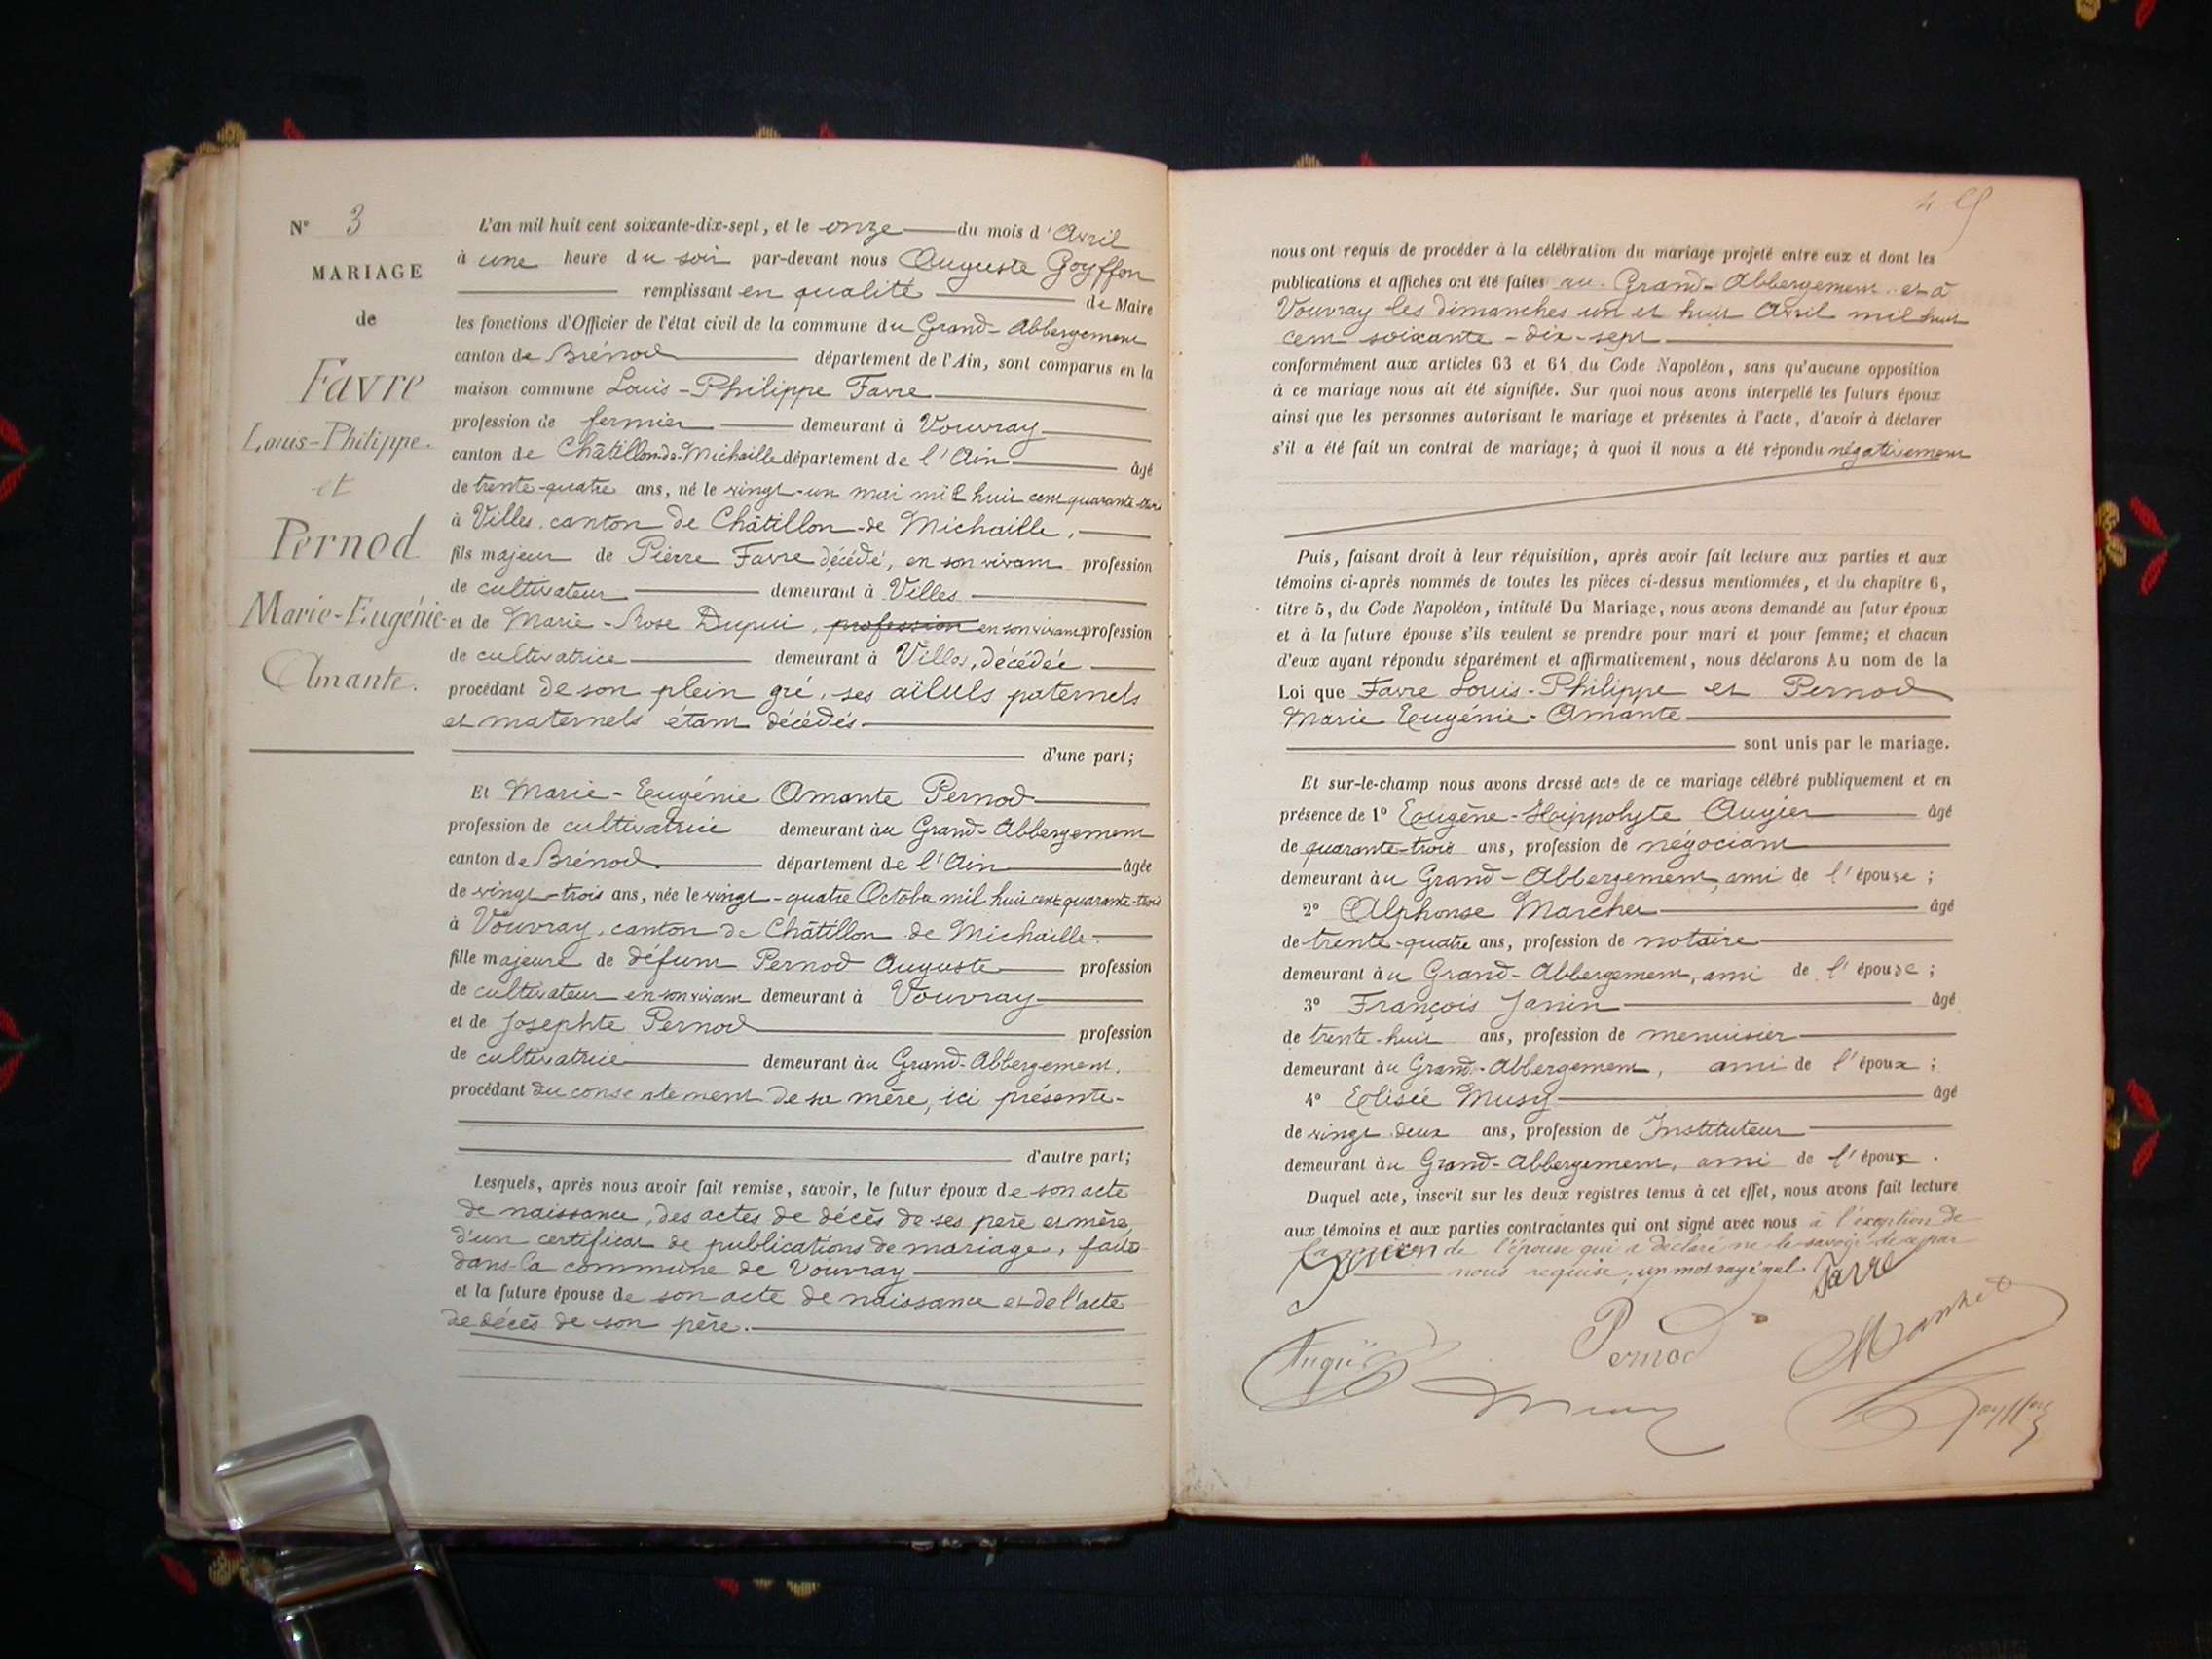 N° 3
MARIAGE
de
Favre
Louis-Philippe.
et
Pernod
Marie-Eugénie-
Amante.
L'an mil huit cent soixante-dix-sept, et le onze du mois d'Avril
à une heure du soir par-devant nous Auguste Goyffon
remplissant en qualité de Maire
les fonctions d'Officier de l'état civil de la commune du Grand-Abbergement
canton de Brénod département de l'Ain, sont comparus en la
maison commune Louis-Philippe Favre
profession de fermier demeurant à Vouvray
canton de Châtillon-de-Michaille département de l'Ain âgé
de trente-quatre ans, né le vingt-un mai mil huit cent quarante-trois
à Villes, canton de Châtillon-de Michaille,
fils majeur de Pierre Favre décédé, en son vivant profession
de cultivateur demeurant à Villes
et de Marie-Rose Dupui, profession en son vivant profession
de cultivatrice demeurant à Villes, décédée
procédant de son plein gré, ses aïeuls paternels
et maternels étant décédés
d'une part;
Et Marie-Eugénie Amante Pernod
profession de cultivatrice demeurant au Grand-Abbergement
canton de Brénod département de l'Ain âgée
de vingt-trois ans, née le vingt-quatre Octobre mil huit cent quarante-trois
à Vouvray, canton de Châtillon de Michaille
fille majeure de défunt Pernod Auguste profession
de cultivateur en son vivant demeurant à Vouvray
et de Josephte Pernod profession
de cultivatrice demeurant au Grand-Abbergement,
procédant du consentement de sa mère, ici présente-
d'autre part;
Lesquels, après nous avoir fait remise, savoir, le futur époux de son acte
de naissance, des actes de décès de ses père et mère,
d'un certificat de publications de mariage, faites
dans la commune de Vouvray
et la future épouse de son acte de naissance et de l'acte
de décès de son père.
nous ont requis de procéder à la célébration du mariage projeté entre eux et dont les
publications et affiches ont été faites au Grand-Abbergement et à
Vouvray les dimanches un et huit Avril mil huit
cent soixante-dix-sept
conformément aux articles 63 et 64 du Code Napoléon, sans qu'aucune opposition
à ce mariage nous ait été signifiée. Sur quoi nous avons interpellé les futurs époux
ainsi que les personnes autorisant le mariage et présentes à l'acte, d'avoir à déclarer
s'il a été fait un contrat de mariage; à quoi il nous a été répondu négativement
Puis, faisant droit à leur réquisition, après avoir fait lecture aux parties et aux
témoins ci-après nommés de toutes les pièces ci-dessus mentionnées, et du chapitre 6,
titre 5, du Code Napoléon, intitulé Du Mariage, nous avons demandé au futur époux
et à la future épouse s'ils veulent se prendre pour mari et pour femme; et chacun
d'eux ayant répondu séparément et affirmativement, nous déclarons Au nom de la
Loi que Favre Louis-Philippe et Pernod
Marie Eugénie-Amante
sont unis par le mariage.
Et sur-le-champ nous avons dressé acte de ce mariage célébré publiquement et en
présence de 1° Eugène-Hippolyte Augier âgé
de quarante-trois ans, profession de négociant
demeurant au Grand-Abbergement, ami de l'épouse;
2° Alphonse Marchet âgé
de trente-quatre ans, profession de notaire
demeurant au Grand-Abbergement, ami de l'épouse;
3° François Janin âgé
de trente-huit ans, profession de menuisier
demeurant au Grand-Abbergement, ami de l'époux;
4° Elisée Musy âgé
de vingt deux ans, profession de Instituteur
demeurant au Grand-Abbergement, ami de l'époux.
Duquel acte, inscrit sur les deux registres tenus à cet effet, nous avons fait lecture
aux témoins et aux parties contractantes qui ont signé avec nous à l'exception de
de l'épouse qui a déclaré ne le savoir de ce par
nous requise, un mot rayé nul.
Favre
Pernod
Marchet
Musy
Goyffon